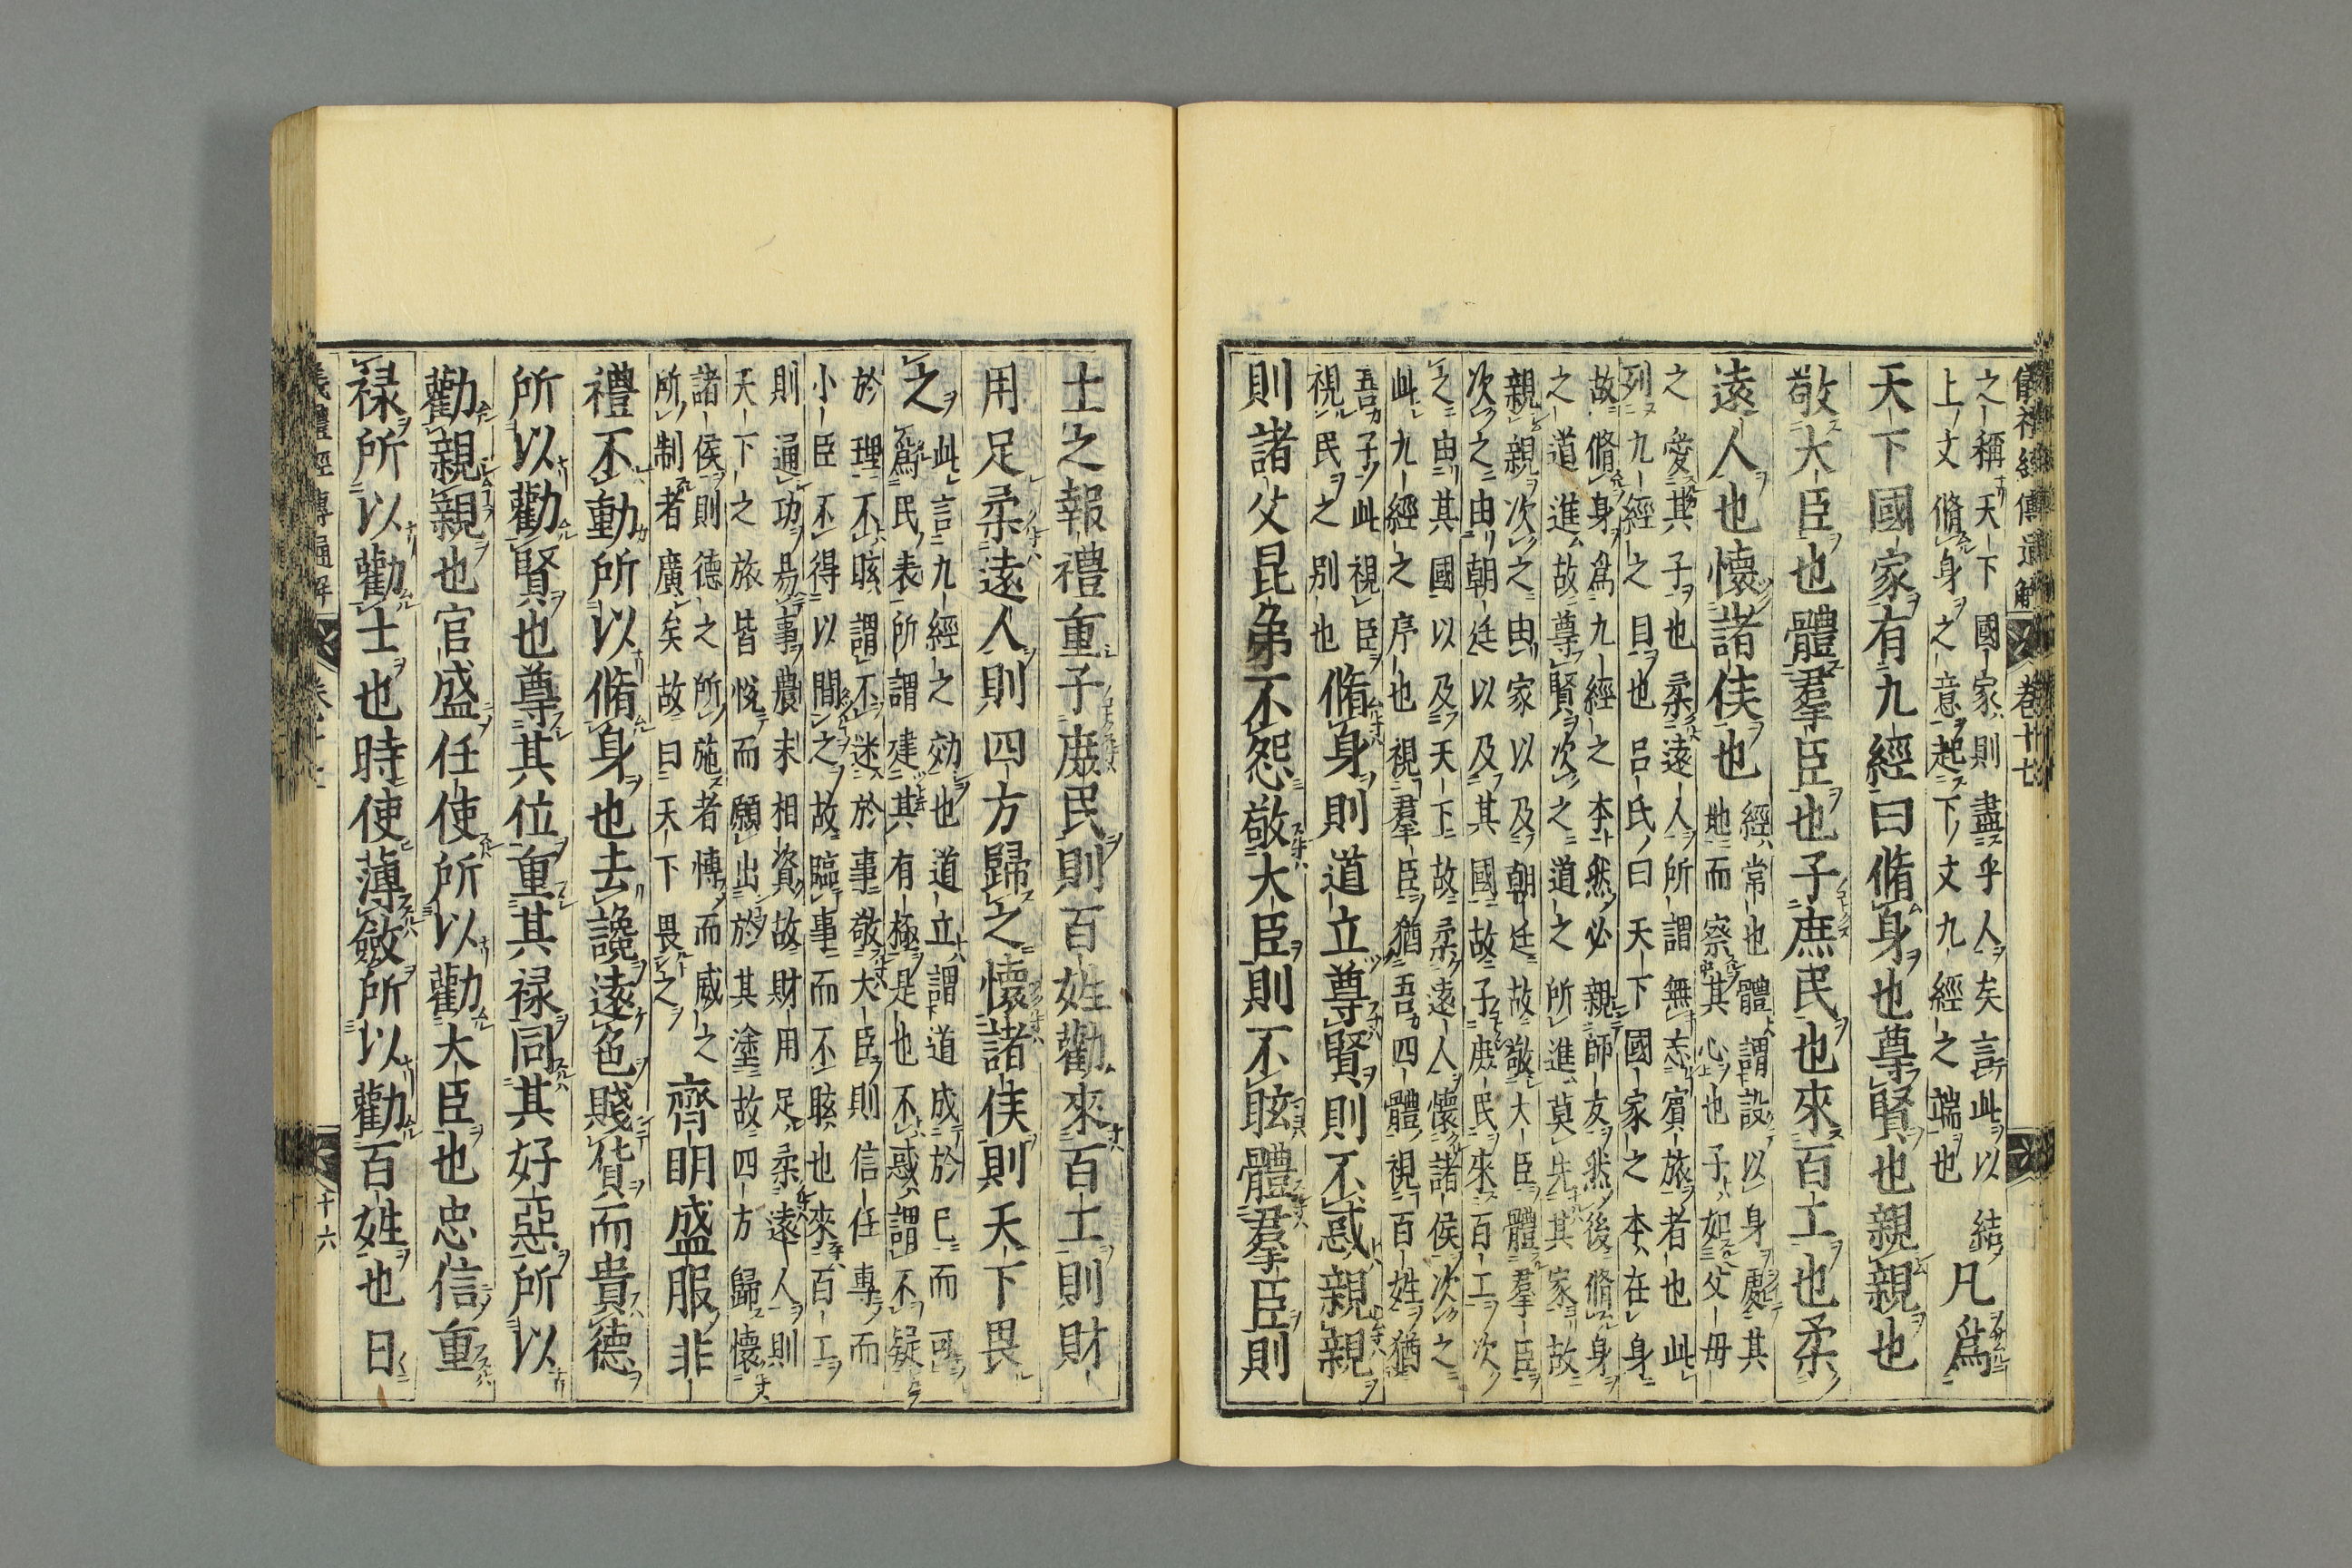 儀禮經傳通解 卷十七
之稱天下國家則盡乎人矣言此以結
上文脩身之意起下文九經之端也
凡爲
天下國家有九經曰脩身也尊賢也親親也
敬大臣也體羣臣也子庶民也來百工也柔
遠人也懷諸侯也
經常也體謂設以身處其
地而察其心也子如父母
之愛其子也柔遠人所謂無忘賓旅者也此
列九經之目也呂氏曰天下國家之本在身
故脩身爲九經之本然必親師友然後脩身
之道進故尊賢次之道之所進莫先其家故
親親次之由家以及朝廷故敬大臣體羣臣
次之由朝廷以及其國故子庶民來百工次
之由其國以及天下故柔遠人懷諸侯次之
此九經之序也視羣臣猶吾四體視百姓猶
吾子此視臣
視民之別也
脩身則道立尊賢則不惑親親
則諸父昆弟不怨敬大臣則不眩體羣臣則
士之報禮重子庶民則百姓勸來百工則財
用足柔遠人則四方歸之懷諸侯則天下畏
之
此言九經之効也道立謂道成於己而可
爲民表所謂建其有極是也不惑謂不疑
於理不眩謂不迷於事敬大臣則信任專而
小臣不得以間之故臨事而不眩也來百工
則通功易事農末相資故財用足柔遠人則
天下之旅皆悅而願出於其塗故四方歸懷
諸侯則德之所施者博而威之
所制者廣矣故曰天下畏之
齊明盛服非
禮不動所以脩身也去讒遠色賤貨而貴德
所以勸賢也尊其位重其祿同其好惡所以
勸親親也官盛任使所以勸大臣也忠信重
祿所以勸士也時使薄斂所以勸百姓也日
儀禮經傳通解 十六